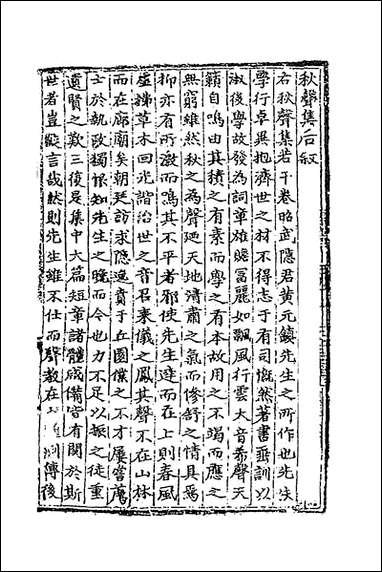 秋聲集后叙
右秋聲集若干卷昭武隱君黄元鎮先生之所作也先生
學行卓異抱濟世之材不得志于有司慨然著書垂訓以
淑後學故發為詞章雄贍富麗如飄風行雲大音希聲天
籟自鳴由其積之有素而學之有本故用之不竭而應之
無窮雖然秋之為聲廼天地清肅之氣而修舒之情具焉
抑亦有所激而鳴其不平者邪使先生達而在上則春風
虚拂草木回光諧治世之音召来儀之鳳其聲不在山林
而在廊廟矣朝廷訪求隱逸賁于丘園僕之不才屢嘗薦
士於執政獨恨知先生之晚而令也力不足以振之徒重
遺賢之歎三復是集中大篇短章諸體咸備皆有関於斯
世者豈㱠言哉然則先生雖不仕而聲教在 傳後